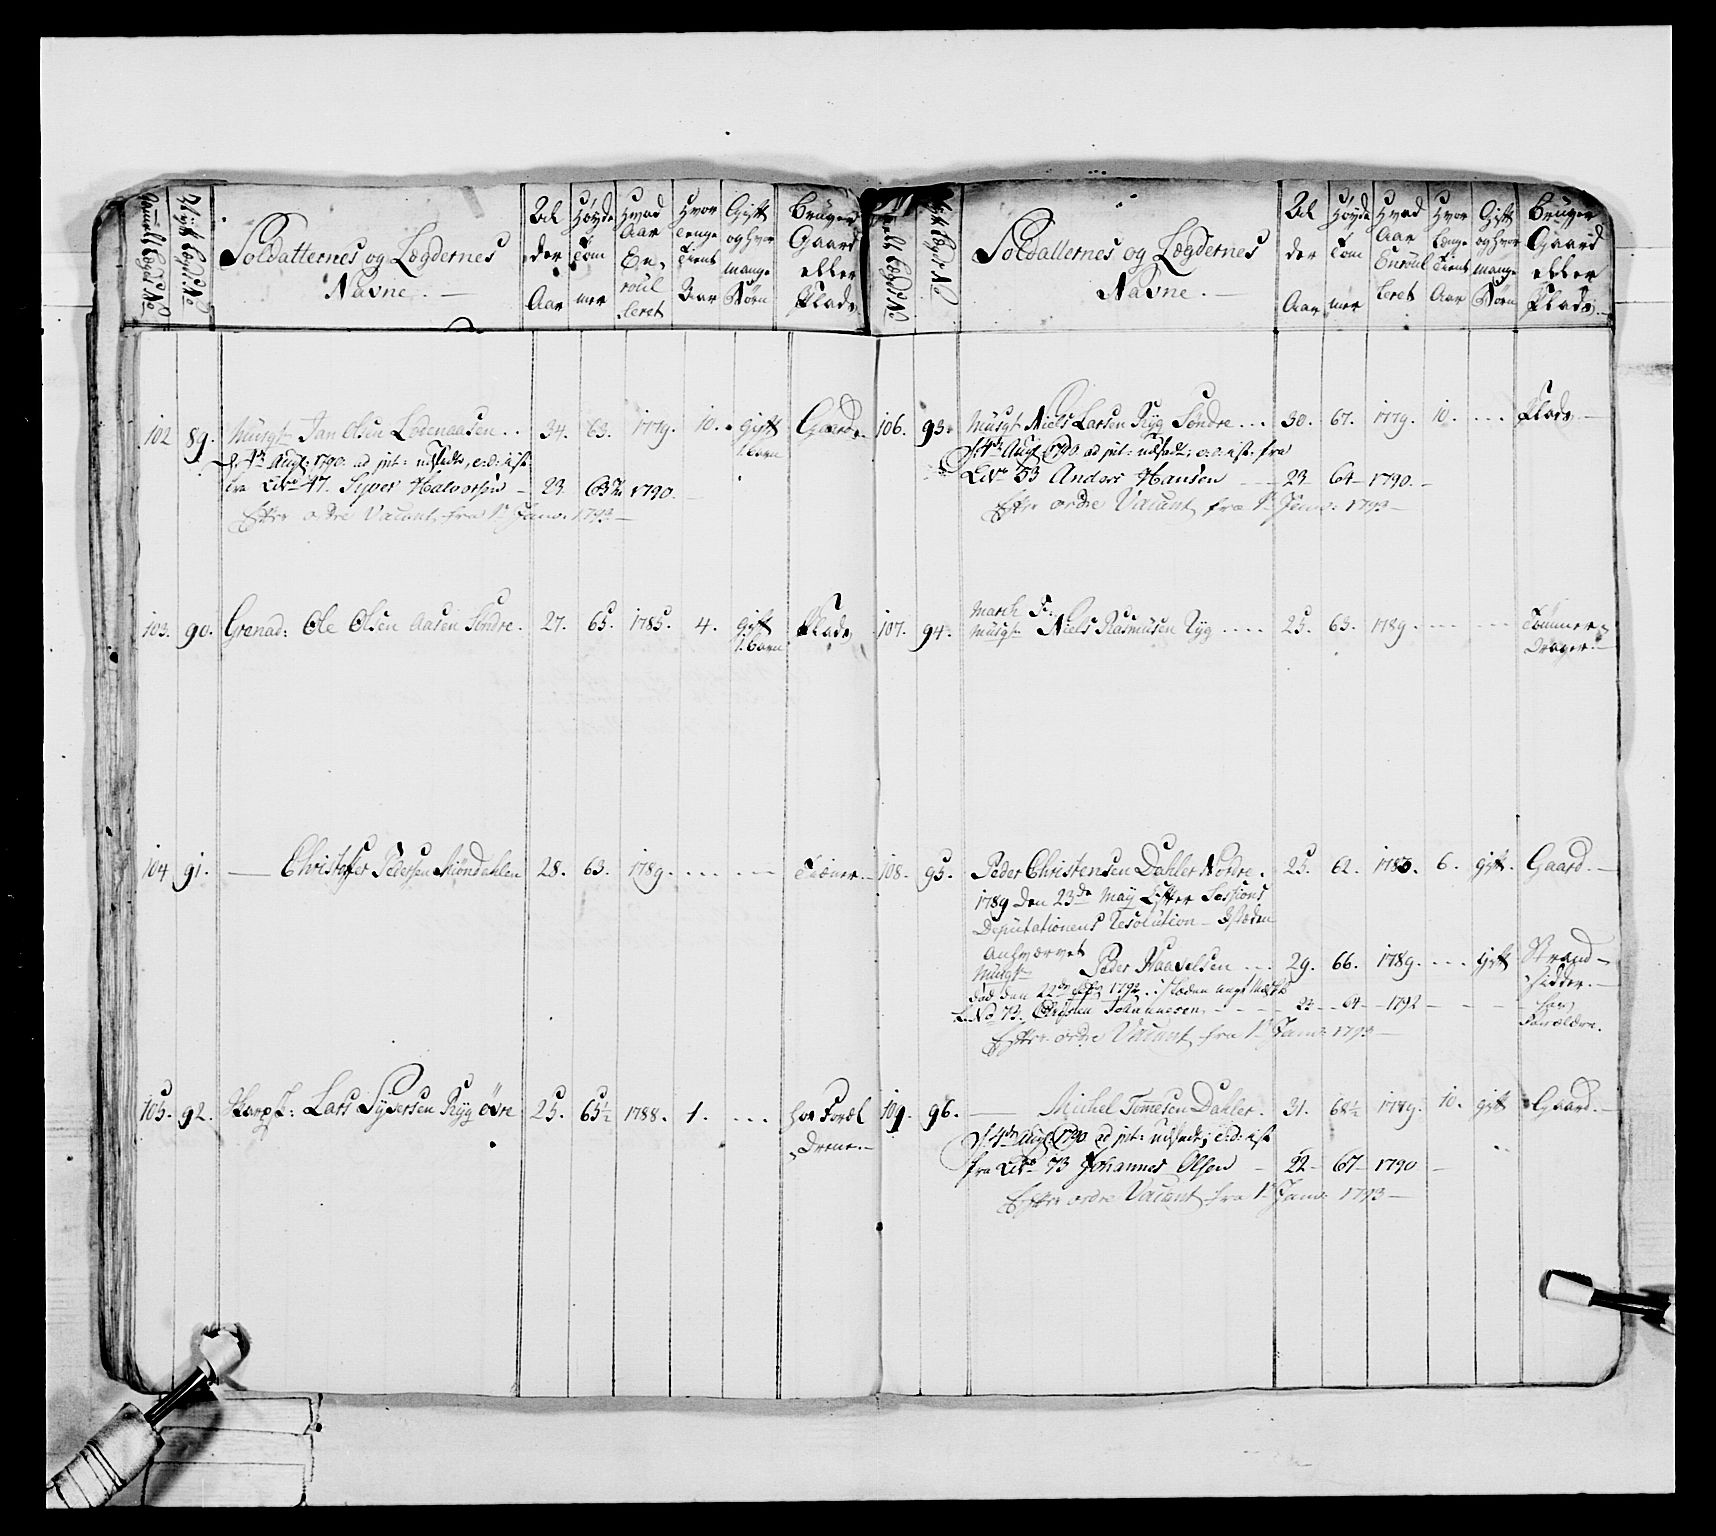 Gammelt Lægds No
Nyt Lægds No
Soldatternes og Lægdernes
Navne. —
Al
der
Aar
Høyde
Tom
mer
Hvad
Aar
En,
roul
leret
Hvor
lenge
Tient
Aar
Gift
og hvor
mange
Børn
Bruger
Gaard
eller
Plads
102 89. Musqt. Jan Olsen Lodenaasen . . 34. 63. 1779. 10. gift Gaard.
1. barn
d. 4de Augt: 1790. ad int: udslædt, e: d: i st:
fra L No 47. Syver Halvorsen — 23 63 1790. —
Efter ordre Vacant fra 1te Janv: 1793 —
103. 90. Grenad: Ole Olsen Aasen Søndre. 27. 65. 1785. 4. gift Plads
1. barn
104 91. — Christoffer Pedersen Miøndahlen 28. 63. 1789. . . . . — Tiæner. —
105. 92. Skarpsk: Lars Syversen Ryg øvre 25. 65½ 1788. 1. . . . hos Foræl
drene. —
Gammelt Lægds No
Nyt Lægds No
Soldatternes og Lægdernes
Navne. —
Al
der
Aar
Høyde
Tom
mer
Hvad
Aar
Enroul
leret
Hvor
længe
Tient
Aar
Gift
og hvor
mange
Børn
Bruger
Gaard
eller
Plads.
106. 93. Musqt Niels Larsen Ryg Søndre . . . 30. 67. 1779. 10. . . . . Plads —
d. 4de Augt 1790 ad int: udslædt; e: d: i st: fra
L No 53 Anders Hansen — 23 64 — 1790. —
Efter ordre Vacant fra 1te Janv: 1793 —
March
107. 94. Musqt Niels Rasmusen Ryg . . . . 25. 63. 1789. . . . . . . . Tømmer
Drager. —
108. 95. Peder Christensen Dahler Nordre. 25. 62. 1783. 6. gift. Gaard. —
1789 den 23de May Efter Sessions
Deputationens Resolution — Istæden
Anhværvet
Musqt Peder Paavelsen . . . 29. 66. 1789. . . . gift Strand —
sidder. —
død den 22de 1792 . . istæden
L: No 73. Christen Johannesen. — — 22 — 64 — 1792 — — hos
Forældre.
Efter ordre Vacant fra 1te Janv: 1793 —
109. 96. — Michel Tommesen Dahler. 31. 68½ 1779. 10. gift Gaard. —
d. 4de Augt 1790 ad int: udslædt; e: d: i st
fra L No 73 Johannes Olsen — 22 — 67 — 1790 —
Efter ordre Vacant fra 1te Janv: 1793 —